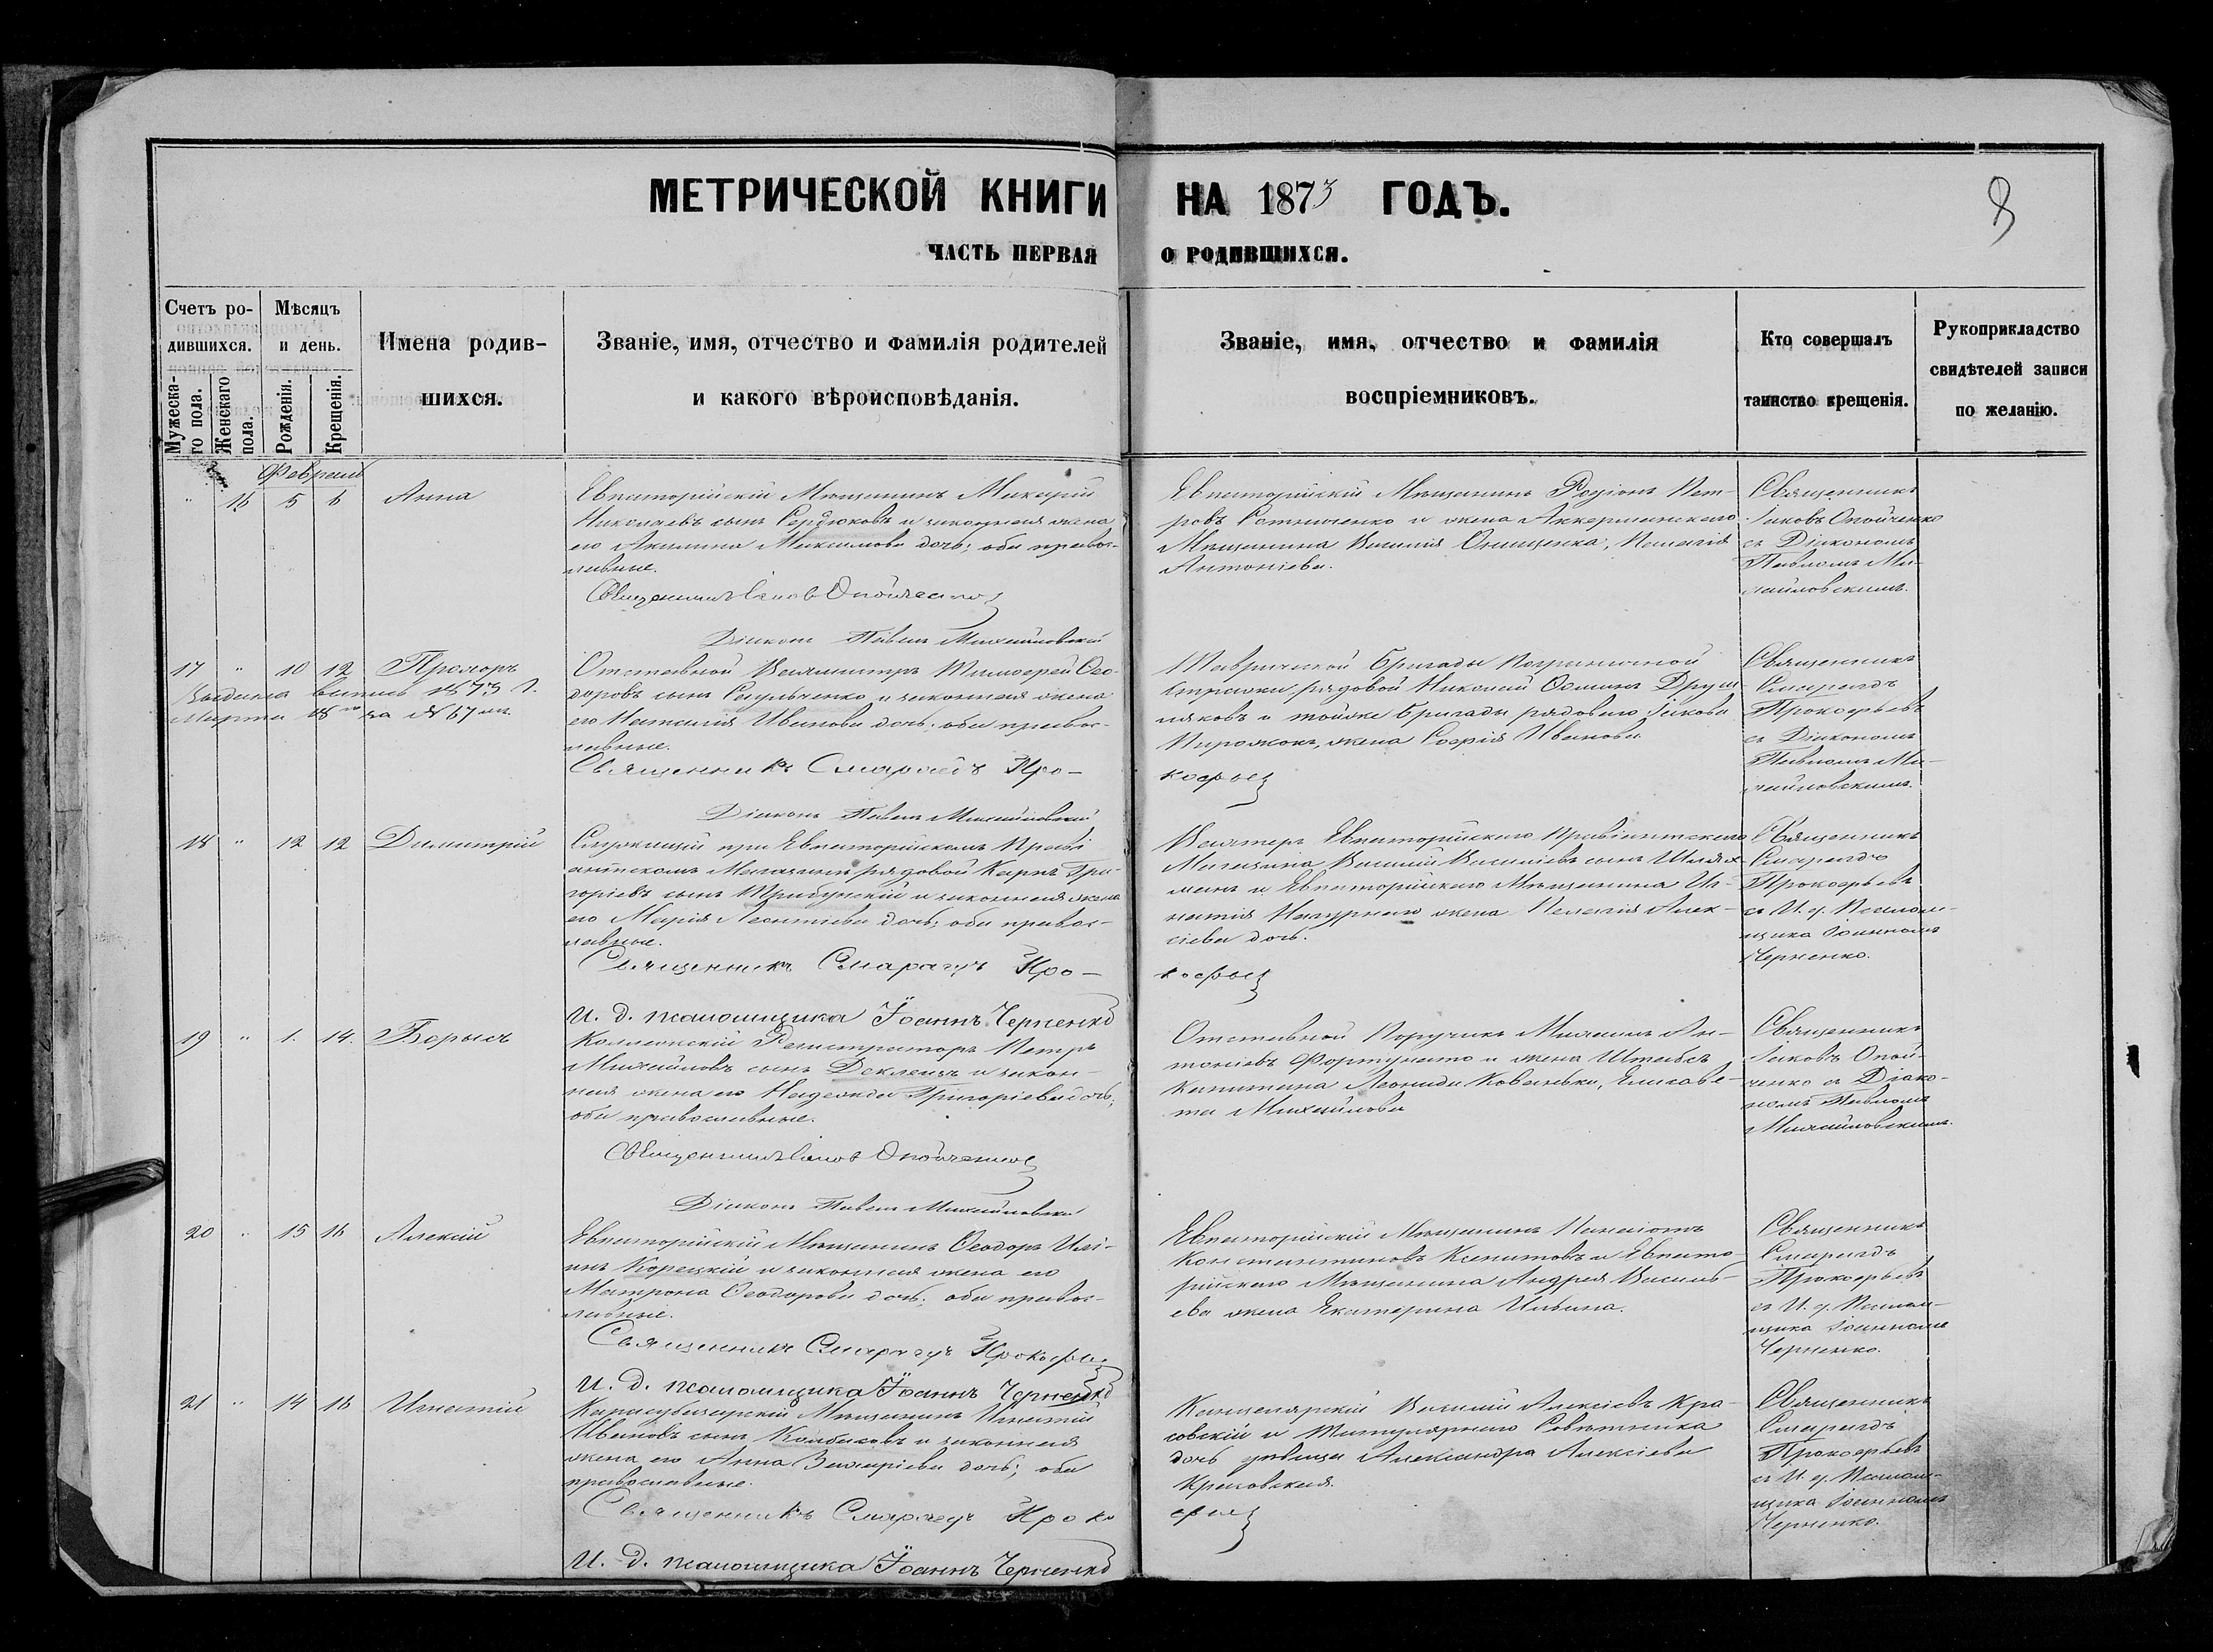 МЕТРИЧЕСКОЙ КНИГИ НА 1873 ГОДЪ.
8
ЧАСТЬ ПЕРВАЯ О РОДИВШИХСЯ.
Счетъ ро-
дившихся.
Мужеска-
го пола.
Женскаго
пола.
Мѣсяцъ
и день.
Рожденія.
Крещенія.
Имена родив-
шихся.
Званіе, имя, отчество и фамилія родителей
и какого вѣроисповѣданія.
Званіе, имя, отчество и фамилія
воспріемниковъ.
Кто совершалъ
таинство крещенія.
Рукоприкладство
свидѣтелей записи
по желанію.
Февраль
" 16 5 6 Анна
Евпаторійскій Мѣщанинъ Макарій
Николаевъ сынъ Сердюковъ и законная жена
его Акилина Максимова дочь; оба правос-
лавные.
Священникъ Іаковъ Опойченко
Діаконъ Павелъ Михайловскій
Евпаторійскій Мѣщанинъ Родіонъ Пет-
ровъ Сотниченко и жена Аккерманскаго
Мѣщанина Василія Онищенка, Пелагія
Антоніева.
Священникъ
Іаковъ Опойченко
съ Діакономъ
Павломъ Ми-
хайловскимъ.
17 " 10 12 Прохоръ
Выдана выпись 1873 г.
Марта 18го за № 67мъ
Отставной Вахмистръ Тимофей Ѳео-
доровъ сынъ Сегульченко и законная жена
его Наталія Иванова дочь; оба правос-
лавные.
Священникъ Смарагдъ Про-
кофьев
Діаконъ Павелъ Михайловскій
Таврической Бригады Пограничной
Стражи рядовой Николай Осиповъ Друш-
ляковъ и тойже Бригады рядового Іакова
Пирожокъ, жена Софія Иванова.
Священникъ
Смарагдъ
Прокофьевъ
съ Діакономъ
Павломъ Ми-
хайловскимъ.
18 " 12 12 Димитрій
Служащій при Евпаторійскомъ Прові-
антскомъ Магазинѣ рядовой Карпъ Гри-
горіевъ сынъ Трибунскій и законная жена
его Марія Леонтіева дочь; оба правос-
лавные.
Священникъ Смарагдъ Про-
кофьев
И. д. псаломщика Іоаннъ Черненко
Вахтеръ Евпаторійскаго Провіантскаго
Магазина Василій Василіевъ сынъ Шлях-
и Евпаторійскаго Мѣщанина Иг-
натія жена Пелагія Алек-
сіева дочь.
Священникъ
Смарагдъ
Прокофьевъ
съ И. д. Псалом-
щика Іоанномъ
Черненко.
19 " 1. 14. Борысъ
Коллежскій Регистраторъ Петръ
Михайловъ сынъ Деклеизъ и закон-
ная жена его Надежда Григоріева дочь;
оба православные.
Священникъ Іаковъ Опойченко
Діаконъ Павелъ Михайловскій
Отставной Поручикъ Михаилъ Ан-
тоніевъ Фортунато и жена Штабсъ
Капитана Леонида Кованько, Елисаве-
та Михайлова
Священникъ
Іаковъ Опой-
ченко съ Діако-
номъ Павломъ
Михайловскимъ.
20 " 15 16 Алексій
Евпаторійскій Мѣщанинъ Ѳеодоръ Илі-
инъ Корецкій и законная жена его
Матрона Ѳеодорова дочь; оба правос-
лавные.
Священникъ Смарагдъ Прокофьев
И. д. псаломщика Іоаннъ Черненко
Евпаторійскій Мѣщанинъ Панаіотъ
Константиновъ и Евпато-
рійскаго Мѣщанина Андрея Василь-
ева жена Екатерина Ильина.
Священникъ
Смарагдъ
Прокофьевъ
съ И. д. Псалом-
щика Іоанномъ
Черненко.
21 " 14 16 Игнатій
Карасубазарскій Мѣщанинъ Игнатій
Ивановъ сынъ Колбасовъ и законная
жена его Анна Захаріева дочь; оба
православные.
Священникъ Смарагдъ Проко
фьев
И. д. псаломщика Іоаннъ Черненко
Канцелярскій Василій Алексіевъ Кра-
совскій и Титулярнаго Совѣтника
дочь дѣвица Александра Алексіева
Красовская.
Священникъ
Смарагдъ
Прокофьевъ
съ И. д. Псалом-
щика Іоанномъ
Черненко.